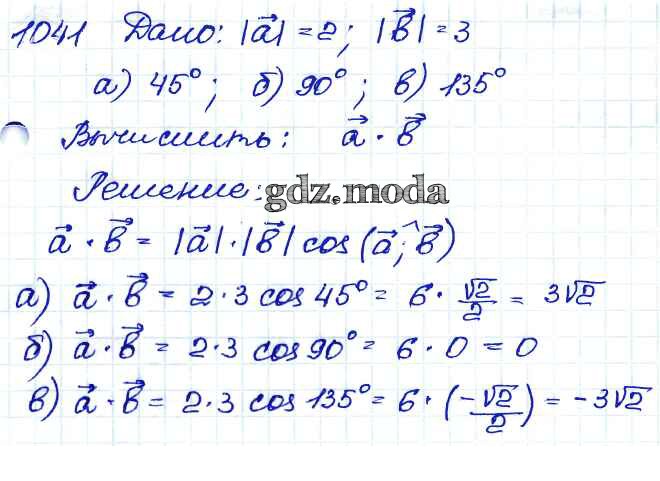 1041 Дано: |a⃗| = 2; |b⃗| = 3
а) 45°; б) 90°; в) 135°
Вычислить: a⃗ · b⃗
Решение: gdz.moda
a⃗ · b⃗ = |a⃗| · |b⃗| cos (a⃗;^b⃗)
а) a⃗ · b⃗ = 2 · 3 cos 45° = 6 · √2/2 = 3√2
б) a⃗ · b⃗ = 2 · 3 cos 90° = 6 · 0 = 0
в) a⃗ · b⃗ = 2 · 3 cos 135° = 6 · (-√2/2) = -3√2